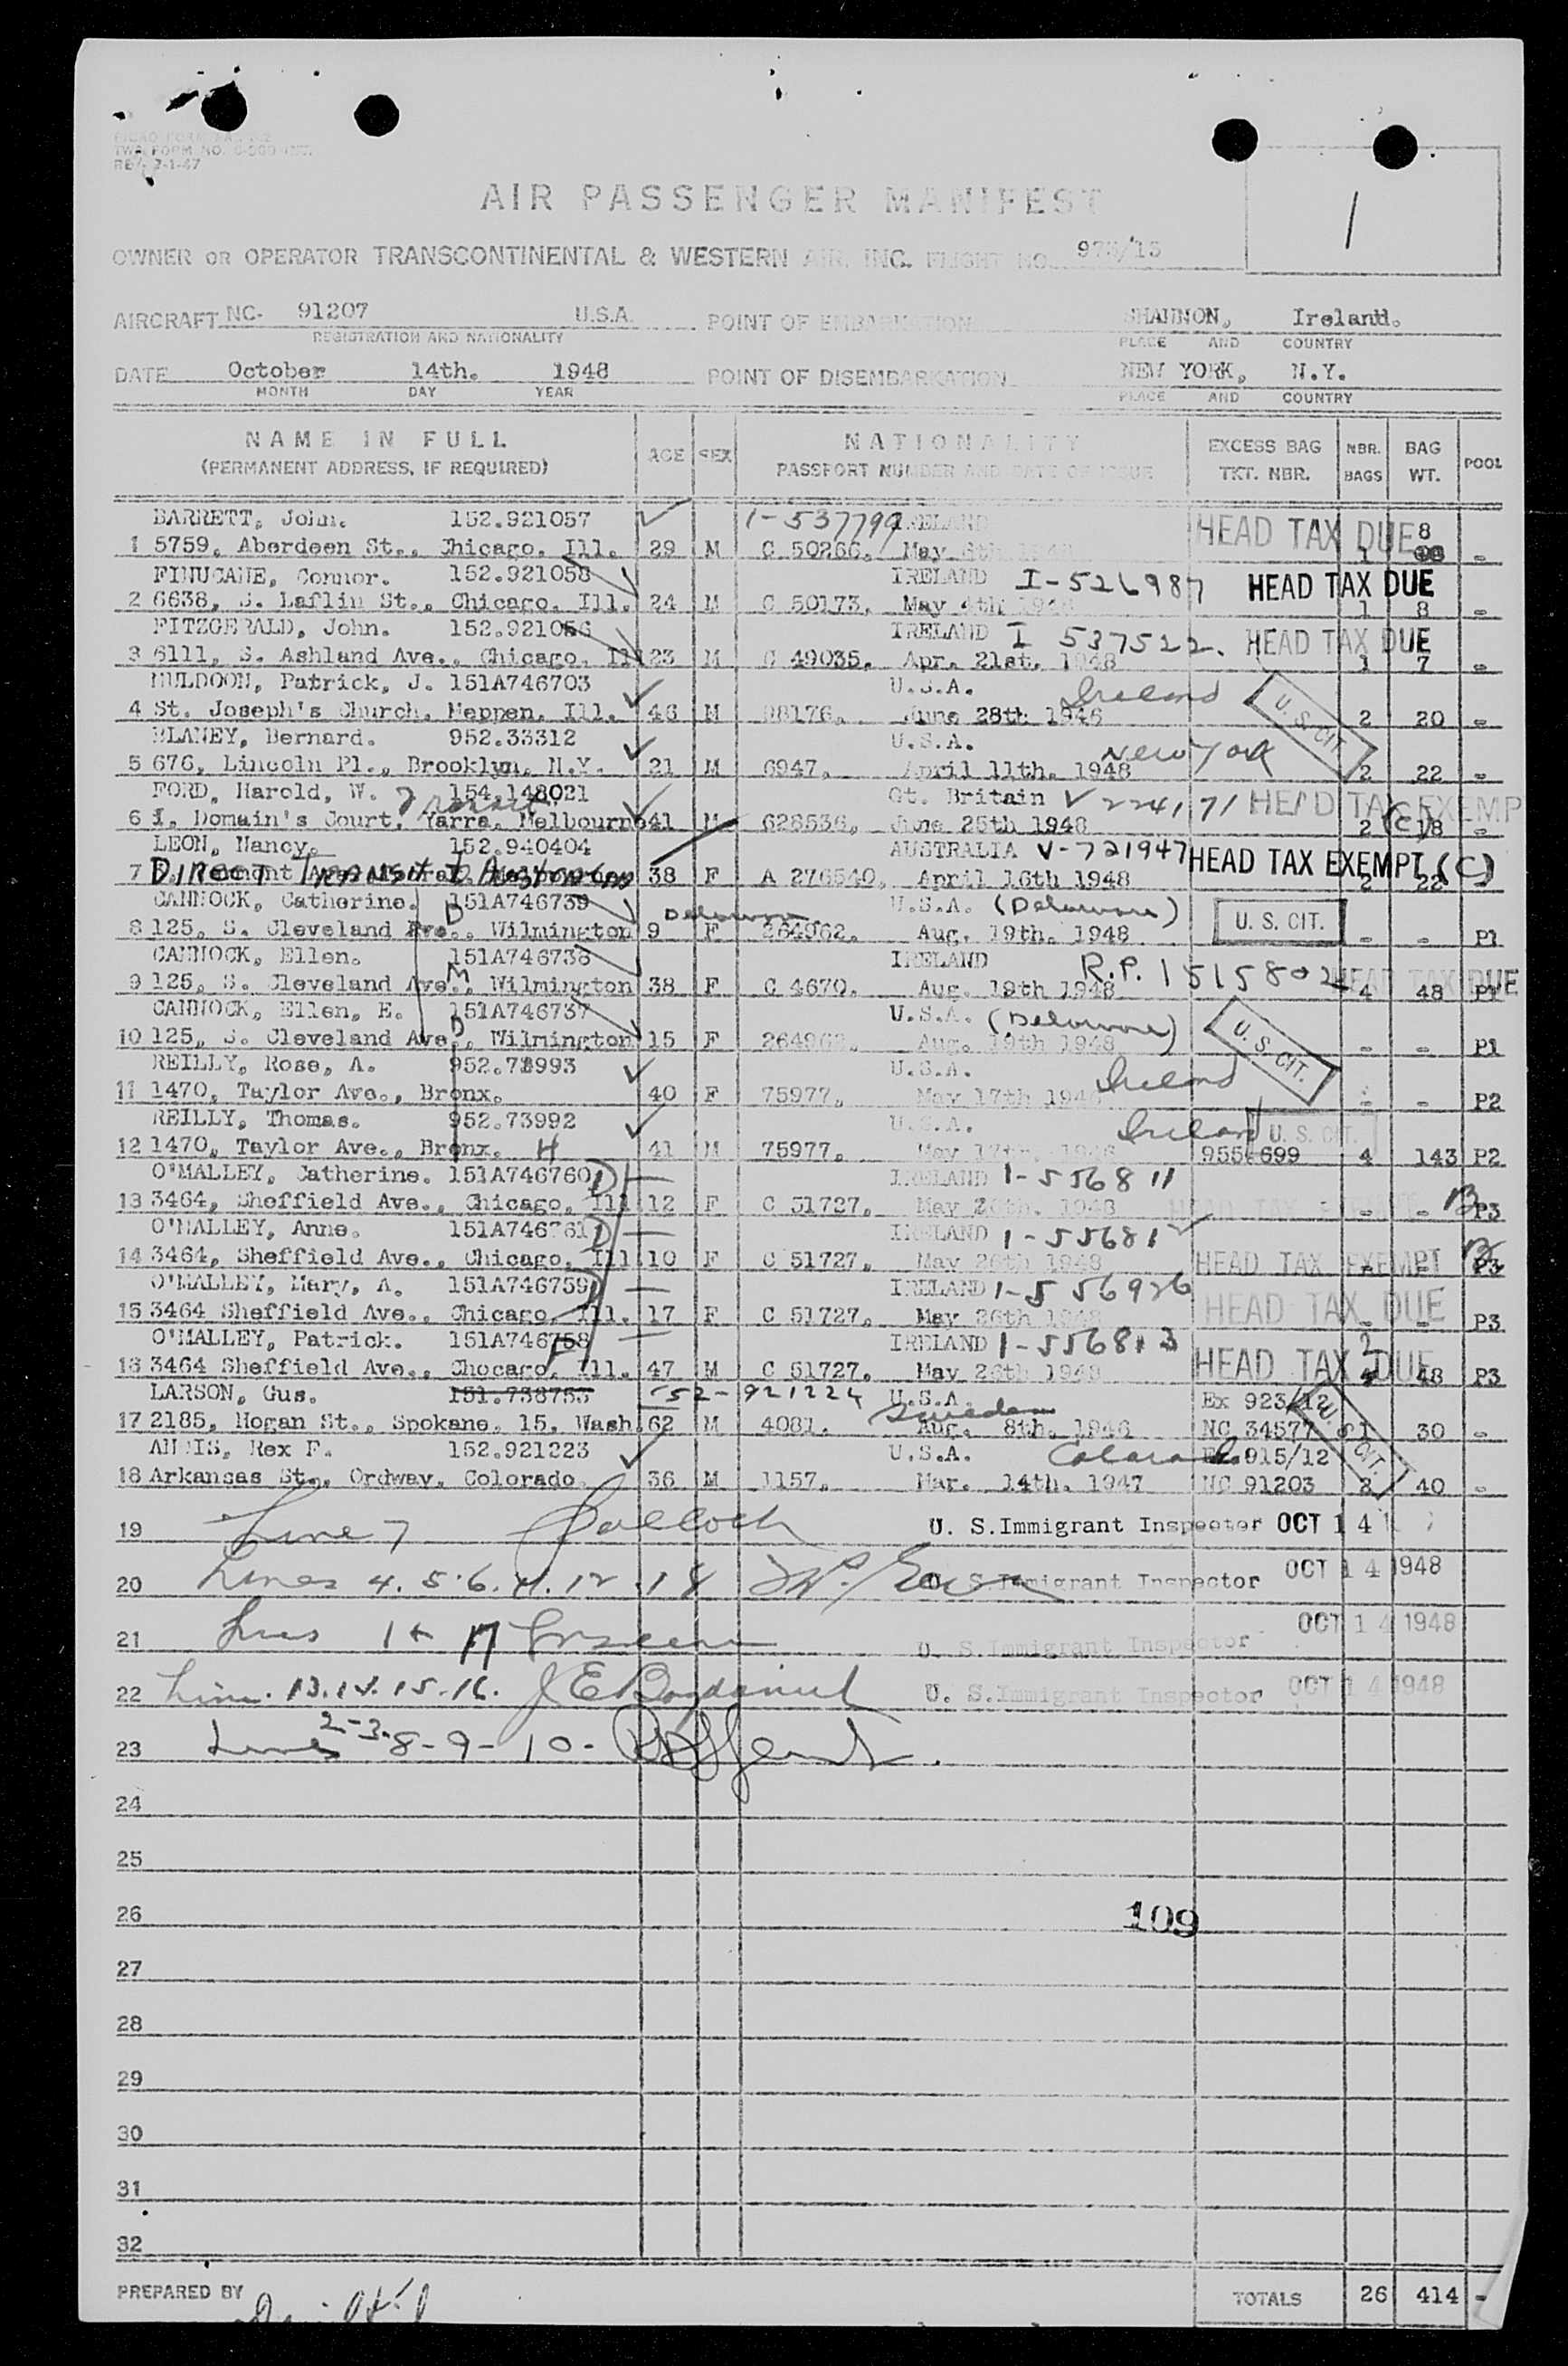 TWA FORM NO.
REV. 7-1-47
AIR PASSENGER MANIFEST
1
OWNER OR OPERATOR TRANSCONTINENTAL & WESTERN AIR, INC. FLIGHT NO. 973/13
AIRCRAFT NC- 91207 U.S.A. POINT OF EMBARKATION SHANNON, Ireland.
REGISTRATION AND NATIONALITY PLACE AND COUNTRY
DATE October 14th. 1948 POINT OF DISEMBARKATION NEW YORK, N.Y.
MONTH DAY YEAR PLACE AND COUNTRY
NAME IN FULL AGE SEX NATIONALITY EXCESS BAG NBR. BAG POOL
(PERMANENT ADDRESS, IF REQUIRED) PASSPORT NUMBER AND DATE OF ISSUE TKT. NBR. BAGS WT.
BARRETT, John. 152.921057 1-537799 IRELAND HEAD TAX DUE 8
1 5759, Aberdeen St., Chicago, Ill. 29 M C 50266. May 6th 1948 1 -
FINUCANE, Connor. 152.921058 IRELAND I-526987 HEAD TAX DUE
2 6638, S. Laflin St., Chicago, Ill. 24 M C 50173. May 4th 1948 1 8 -
FITZGERALD, John. 152.921056 IRELAND I 537522. HEAD TAX DUE
3 6111, S. Ashland Ave., Chicago, Ill 23 M C 49035. Apr. 21st. 1948 1 7 -
MULDOON, Patrick, J. 151A746703 U.S.A. Ireland U. S. CIT.
4 St. Joseph's Church, Meppen, Ill. 46 M 98176. June 28th 1946 2 20 -
BLANEY, Bernard. 952.33312 U.S.A. New York
5 676, Lincoln Pl., Brooklyn, N.Y. 21 M 6947. April 11th. 1948 2 22 -
FORD, Harold, W. Transit 154.148021 Gt. Britain V 224171 HEAD TAX EXEMP
6 1, Domain's Court, Yarra, Melbourne 41 M 628536. June 25th 1948 2 (C) 18 -
LEON, Nancy. 152.940404 AUSTRALIA V-721947 HEAD TAX EXEMPT (C)
7 DIRECT TRANSIT 38 F A 276540. April 16th 1948 2 22 -
CANNOCK, Catherine. D 151A746739 Delaware U.S.A. (Delaware) U. S. CIT.
8 125, S. Cleveland Ave., Wilmington 9 F 264962. Aug. 19th. 1948 - - P1
CANNOCK, Ellen. 151A746738 IRELAND R.P. 1515802 HEAD TAX DUE
9 125, S. Cleveland Ave., M Wilmington 38 F C 4670. Aug. 19th 1948 4 48 P1
CANNOCK, Ellen, E. 151A746737 U.S.A. (Delaware) U. S. CIT.
10 125, S. Cleveland Ave., D Wilmington 15 F Aug. 19th 1948 - - P1
REILLY, Rose, A. U.S.A. Ireland
11 1470, Taylor Ave., Bronx. 40 F 75977. May 17th 1946 - - P2
REILLY, Thomas. 952.73992 U.S.A. Ireland U. S. CIT.
12 1470, Taylor Ave., Bronx. H 41 M 75977. May 17th. 1946 955.699 4 143 P2
O'MALLEY, Catherine. 151A746760 D IRELAND 1-556811
13 3464, Sheffield Ave., Chicago, Ill 12 F C 51727. May 26th. 1948 HEAD TAX EXEMPT - - B P3
O'MALLEY, Anne. 151A746761 D IRELAND
14 3464, Sheffield Ave., Chicago, Ill 10 F C 51727. May 26th 1948 HEAD TAX EXEMPT - B P3
O'MALLEY, Mary, A. 151A746759 D IRELAND 1-556926
15 3464 Sheffield Ave., Chicago, Ill. 17 F C 51727. May 26th 1948 HEAD TAX DUE - - P3
O'MALLEY, Patrick. 151A746758 IRELAND 1-556813
16 3464 Sheffield Ave., Chocaro, Ill. 47 M C 51727. May 26th 1948 HEAD TAX DUE 48 P3
LARSON, Gus. 151.738753 152-921224 U.S.A. Sweden Ex 923/12
17 2185, Hogan St., Spokane, 15, Wash. 62 M 4081. Aug. 8th. 1946 NC 34577 U. S. CIT. 1 30 -
ANNIS, Rex F. 152.921223 U.S.A. Colorado Ex 915/12
18 Arkansas St., Ordway, Colorado. 36 M 1157. Mar. 14th. 1947 NC 91203 2 40 -
19 Line 7 U. S. Immigrant Inspector OCT 14
20 Lines 4. 5. 6. 11. 12. 18 U. S. Immigrant Inspector OCT 14 1948
21 Lines 1 + 17 U. S. Immigrant Inspector OCT 14 1948
22 Line. 13. 14. 15. 16. U. S. Immigrant Inspector OCT 14 1948
23 Lines 2-3. 8-9-10-
24
25
26 109
27
28
29
30
31
32
PREPARED BY TOTALS 26 414 -